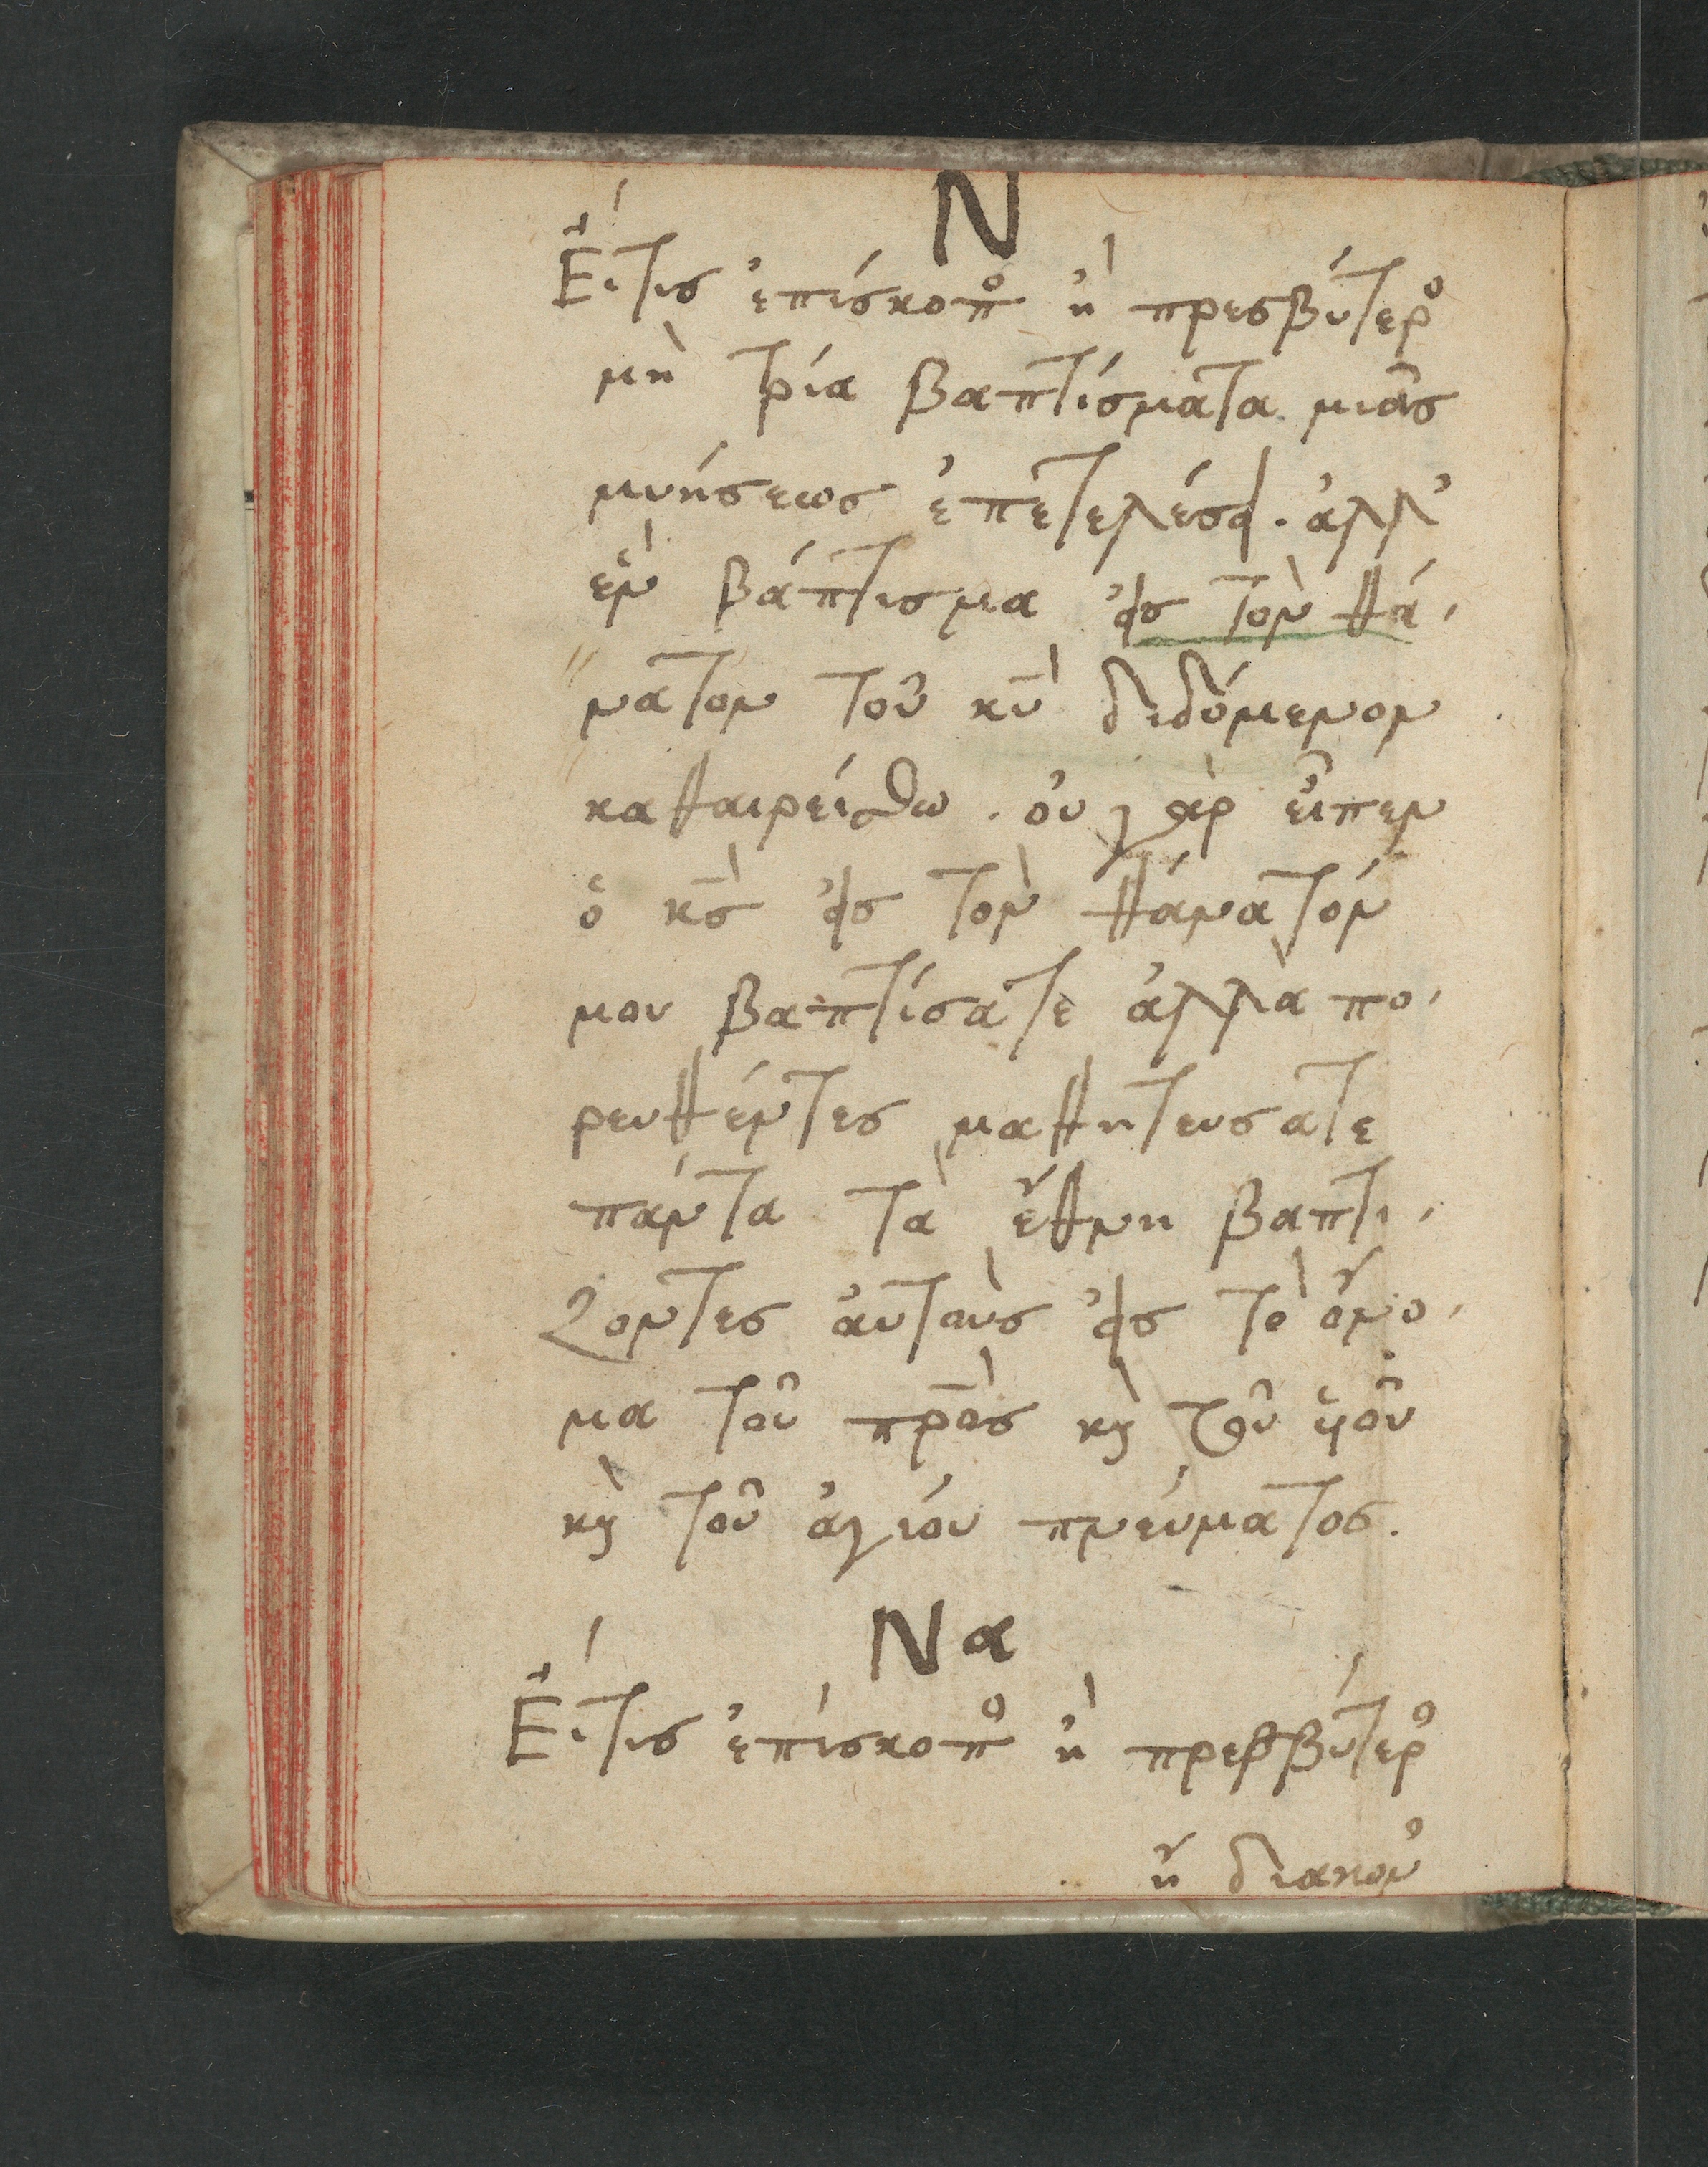 Ν
Εἴτις ἐπίσκοπο ἢ πρεσβύτερο
μὴ τρία βαπτίσματα μιᾶς
μυήσεως ἐπετελέσει. ἀλλ'
ἓν βάπτισμα εἰς τὸν θά,
νατον τοῦ κ̅υ̅ διδόμενον
καθαιρείσθω. οὐ γὰρ εἶπεν
ὁ κ̅ς̅ εἰς τὸν θάνατόν
μου βαπτίσατε ἀλλὰ πο,
ρευθέντες μαθητευσατε
πάντα τὰ ἔθνη βαπτι,
ζοντες ἀυτοὺς εἰς τὸ ὄνο,
μα τοῦ π̅ρ̅ὸς κ̀ τοῦ ὑιοῦ
κ̀ τοῦ ἁγίου πνεύματος.
Να
Εἴτις ἐπίσκοπο ἢ πρεσβύτερο
ἢ διακον